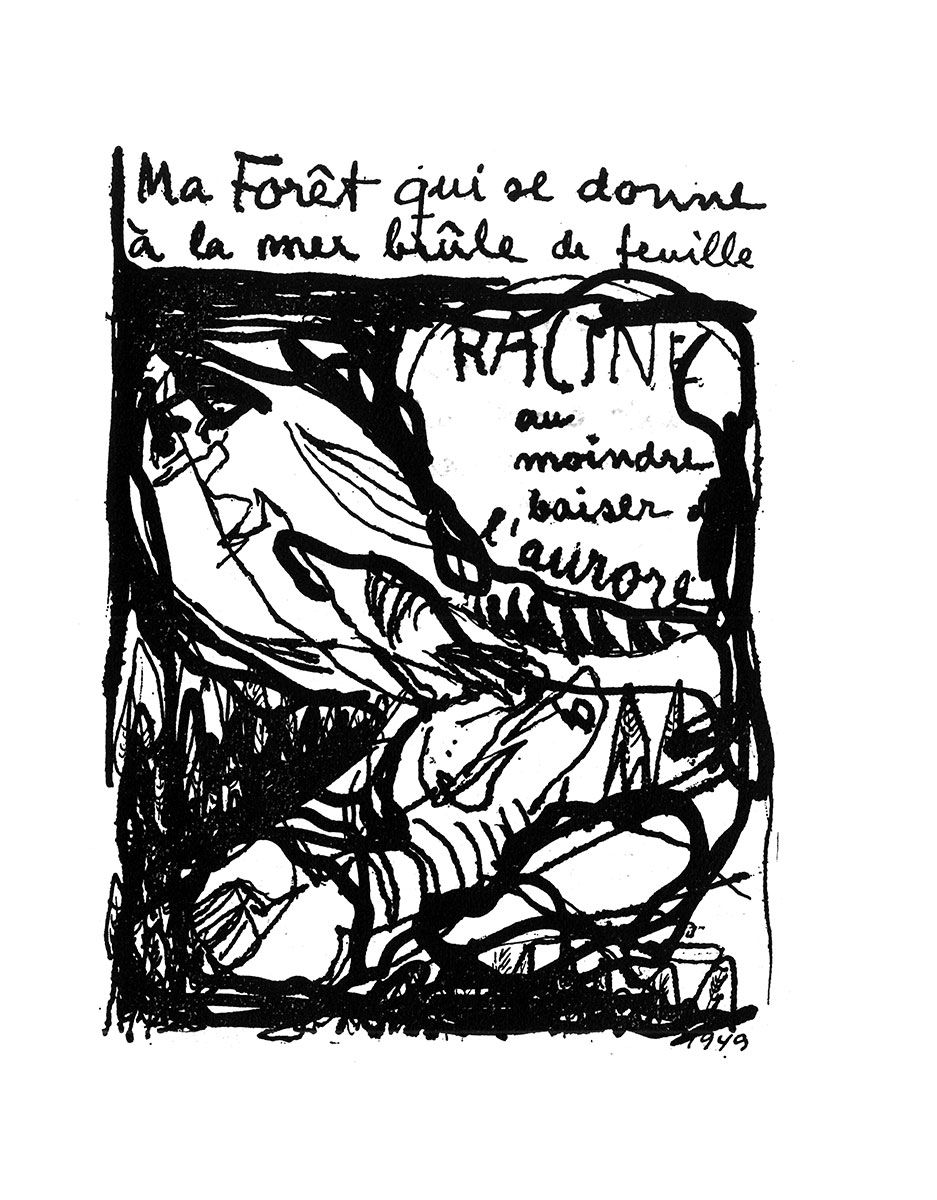 Ma Forêt qui se donne
à la mer brûle de feuille
RACINE
au
moindre
baiser d
l'aurore
1949